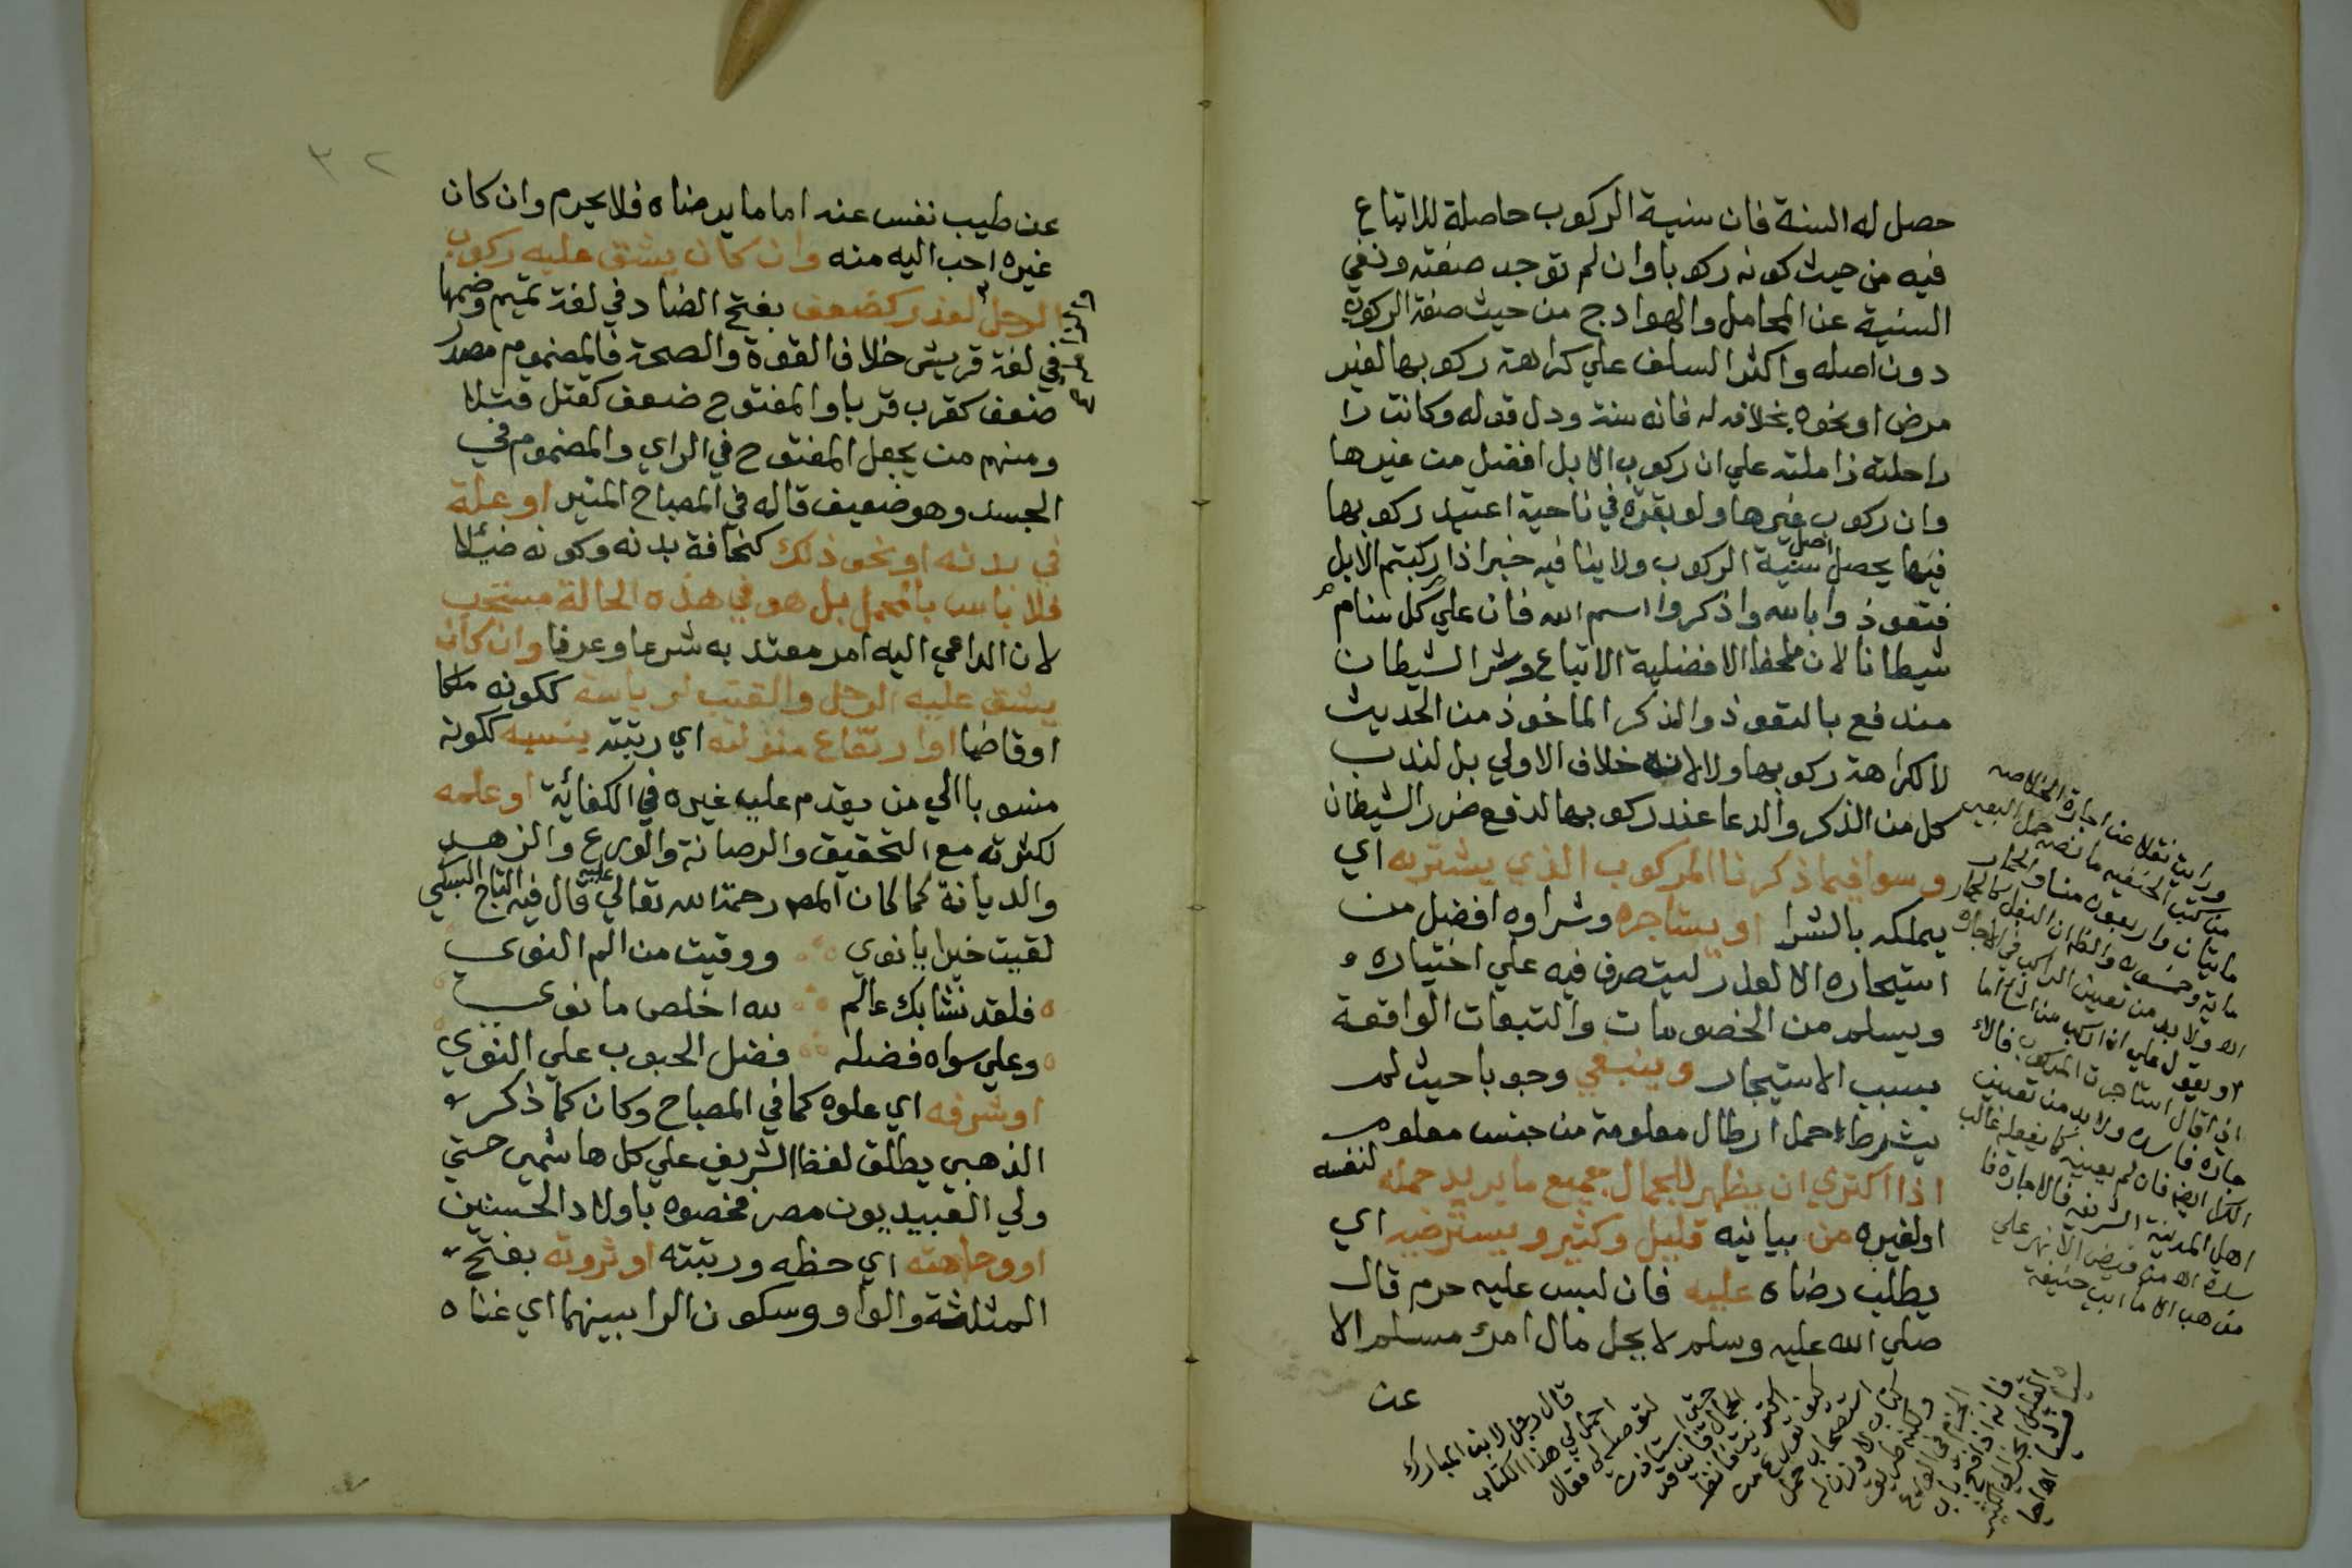 حصل له السنة فان سنية الركوب حاصلة للاتباع
فيه من حيث كونه ركوبا وان لم توجد صفته ونفي
السنية عن المحامل والهوادج من حيث صفة الركوب
دون اصله واكثر السلف علي كراهة ركوبها لغير
مرض او نحوه بخلافه له فانه سنة ودل قوله وكانت را
راحلته زاملته علي ان ركوب الابل افضل من غيرها
وان ركوب غيرها ولو بقرة في ناحية اعتيد ركوبها
فيها يحصل اصل سنية الركوب ولا ينافيه خبر اذا ركبتم الابل
فتعوذوا بالله واذكروا اسم الله فان علي كل سنام
شيطانا لان ملحظ الافضلية الاتباع وشر الشيطان
مندفع بالتعوذ والذكر الماخوذ من الحديث
لا لكراهة ركوبها ولا لانه خلاف الاولي بل لندب
كل من الذكر والدعا عند ركوبها لدفع ضرر الشيطان
وسوا فيما ذكرنا المركوب الذي يشتريه اي
يملكه بالشرا او يستاجره وشراوه افضل من
استيجاره الا لعذر ليتصرف فيه علي اختياره و
ويسلم من الخصومات والتبعات الواقعة
بسبب الاستيجار وينبغي وجوبا حيث لم
يشترط حمل ارطال معلومة من جنس معلوم
اذا اكتري ان يظهر للجمال جميع ما يريد حمله لنفسه
او لغيره من بيانيه قليل وكثير ويسترضيه اي
يطلب رضاه عليه فان لبس عليه حرم قال
صلي الله عليه وسلم لا يحل مال امرء مسلم الا
عن
ورايت نقلا عن اجارة الخلاصه
من كتب الحنفيه ما نصه حمل البعير
مايتان واربعون منا والحمار
ماية وخمسون والظ ان البغل كالحمار
اه ولا بد من تعيين الراكب في الاجارة
او يقول علي ان اركب من اشا اما
اذا قال استاجرت المركوب فالا
جارة فاسده ولا بد من تعيين
الكرا ايضا فان لم يعينه كما يفعله غالب
اهل المدينة الشريفه فالاجارة فا
سدة اه من فيض الانهر علي
مذهب الامام ابي حنيفة
قال رجل لابن المبارك
احمل لي هذا الكتاب
لتوصله لي فقال
حتي استاذن
الجمال فاني قد
اكتريت فانظر
كيف تورع من
استصحاب حمل
كتاب لا وزن له
عن طيب نفس عنه اما ما يرضاه فلا يحرم وان كان
غيره احب اليه منه وان كان يشق عليه ركوب
الرحل لعذر كضعف بفتح الضاد في لغة تميم وضمها
في لغة قريش خلاف القوة والصحة فالمضموم مصدر
ضعف كقرب قربا والمفتوح ضعف كقتل قتلا
ومنهم من يجعل المفتوح في الراي والمضموم في
الجسد وهو ضعيف قاله في المصباح المنير او علة
في بدنه او نحو ذلك كنحافة بدنه وكونه ضئيلا
فلا باس بالمحمل بل هو في هذه الحالة مستحب
لان الداعي اليه امر معتد به شرعا وعرفا وان كان
يشق عليه الرحل والقتب لرياسة ككونه ملكا
او قاضيا او ارتفاع منزلته اي رتبته بنسبه ككونه
منسوبا الي من يقدم علي غيره في الكفائة او علمه
لكثرته مع التحقيق والرصانة والورع والزهد
والديانة كما كان المص رحمة الله تعالي عليه قال فيه التاج السبكي
لقيت خيرا يا نوي ووقيت من الم النوي
فلقد نشا بك عالم لله اخلص ما نوي
وعلي سواه فضله فضل الحبوب علي النوي
او شرفه اي علوه كما في المصباح وكان كما ذكره
الذهبي يطلق لفظ الشريف علي كل هاشمي حتي
ولي العبيديون مصر فخصوه باولاد الحسنين
او وجاهته اي حظه ورتبته او ثروته بفتح
المثلثة والواو وسكون الرا بينهما اي غناه
٣٢